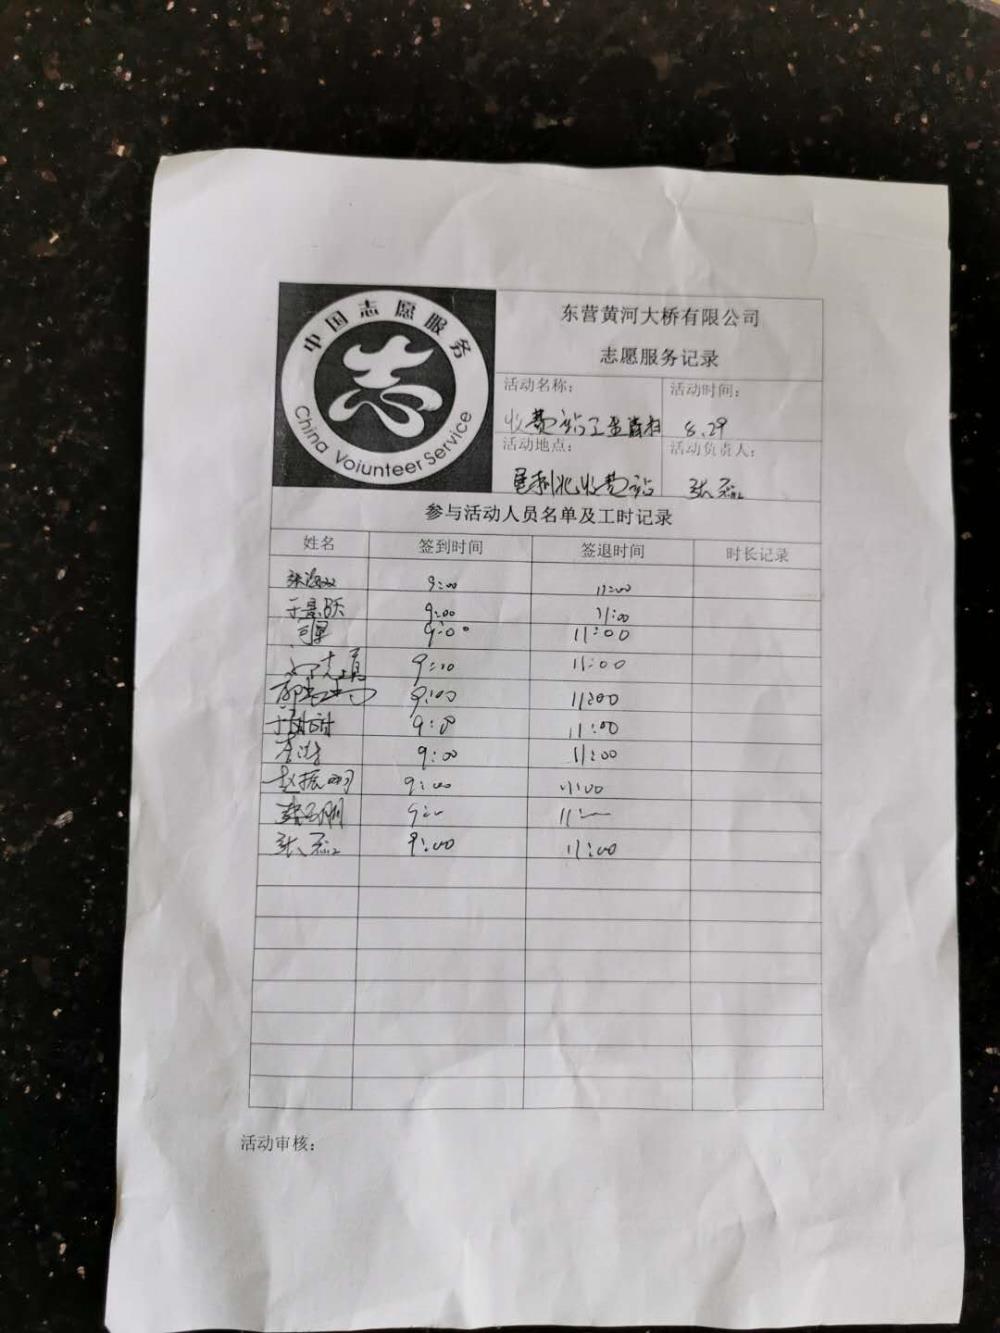 中国志愿服务
志
China Voiunteer Service
东营黄河大桥有限公司
志愿服务记录
活动名称：
活动时间：
收费站卫生清扫
8.29
活动地点：
活动负责人：
垦利北收费站
张磊
参与活动人员名单及工时记录
姓名 签到时间 签退时间 时长记录
9:00 11:00
于景跃 9:00 11:00
9:00 11:00
9:00 11:00
9:00 11:00
于甜甜 9:00 11:00
李涛 9:00 11:00
赵振明 9:00 11:00
9:— 11:—
张磊 9:00 11:00
活动审核：